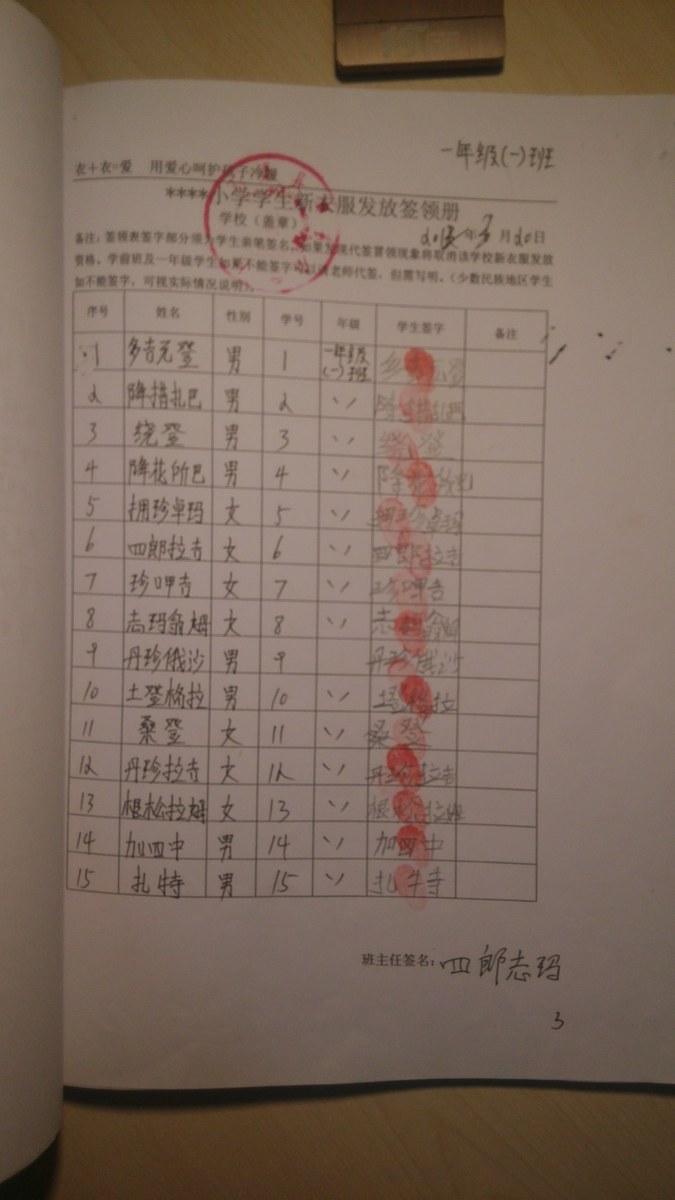 一年级(一)班
衣+衣=爱 用爱心呵护孩子冷暖
****小学学生新衣服发放签领册
学校（盖章）
年 月20日
备注：签领表签字部分须为学生亲笔签名，如果发现代签冒领现象将取消该学校新衣服发放
资格。学前班及一年级学生如果不能签字可以请老师代签，但需写明。（少数民族地区学生
如不能签字，可视实际情况说明）。
序号 姓名 性别 学号 年级 学生签字 备注
1 多吉元登 男 1 一年级(一)班
2 降措扎巴 男 2 〃 降措扎巴
3 绕登 男 3 〃 绕登
4 降花所巴 男 4 〃
5 拥珍卓玛 女 5 〃 拥珍卓玛
6 四郎拉吉 女 6 〃 四郎拉吉
7 珍呷吉 女 7 〃 珍呷吉
8 志玛翁姆 女 8 〃 志玛翁姆
9 丹珍俄沙 男 9 丹珍俄沙
10 土登格拉 男 10 〃 土登格拉
11 桑登 女 11 〃 桑登
12 丹珍拉吉 女 12 〃 丹珍拉吉
13 根松拉姆 女 13 〃 根松拉姆
14 加四中 男 14 〃 加四中
15 扎特 男 15 〃 扎特
班主任签名：四郎志玛
3